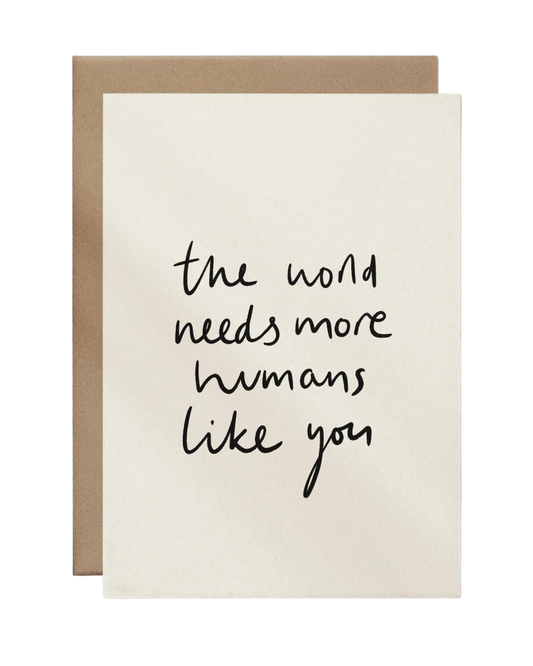 the world
needs more
humans
like you